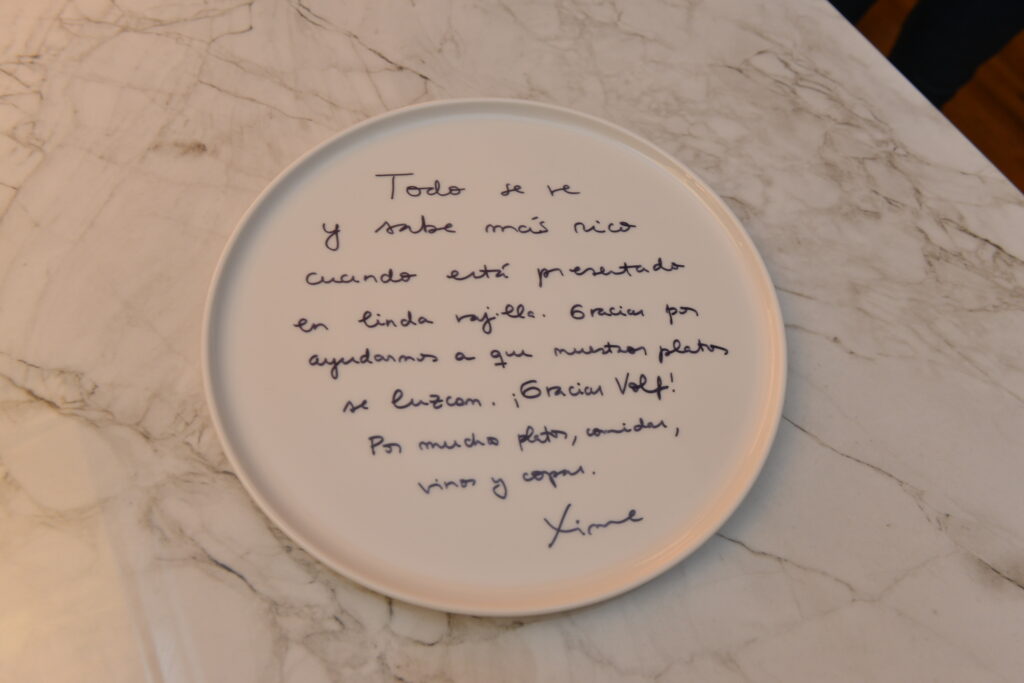 Todo se ve
y sabe más rico
cuando está presentado
en linda vajilla. Gracias por
ayudarnos a que nuestros platos
se luzcan. ¡Gracias Volf!
Por muchos platos, comidas,
vinos y copas.
Xime